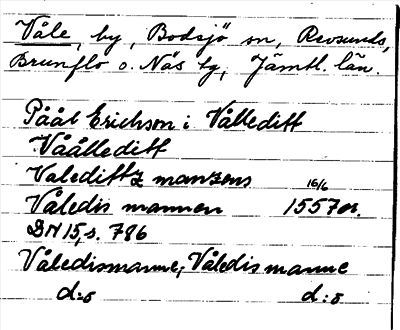 Våle, by, Bodsjö sn, Revsunds,
Brunflo o. Näs tg, Jämtl. län.
Pååt Erichson i Vålleditt
Våålleditt
Valedittz manzens 16/6
Våledis mannen 1557 or.
DN 15, s. 786
Våledismanne; Våledis manne
d:o d:o